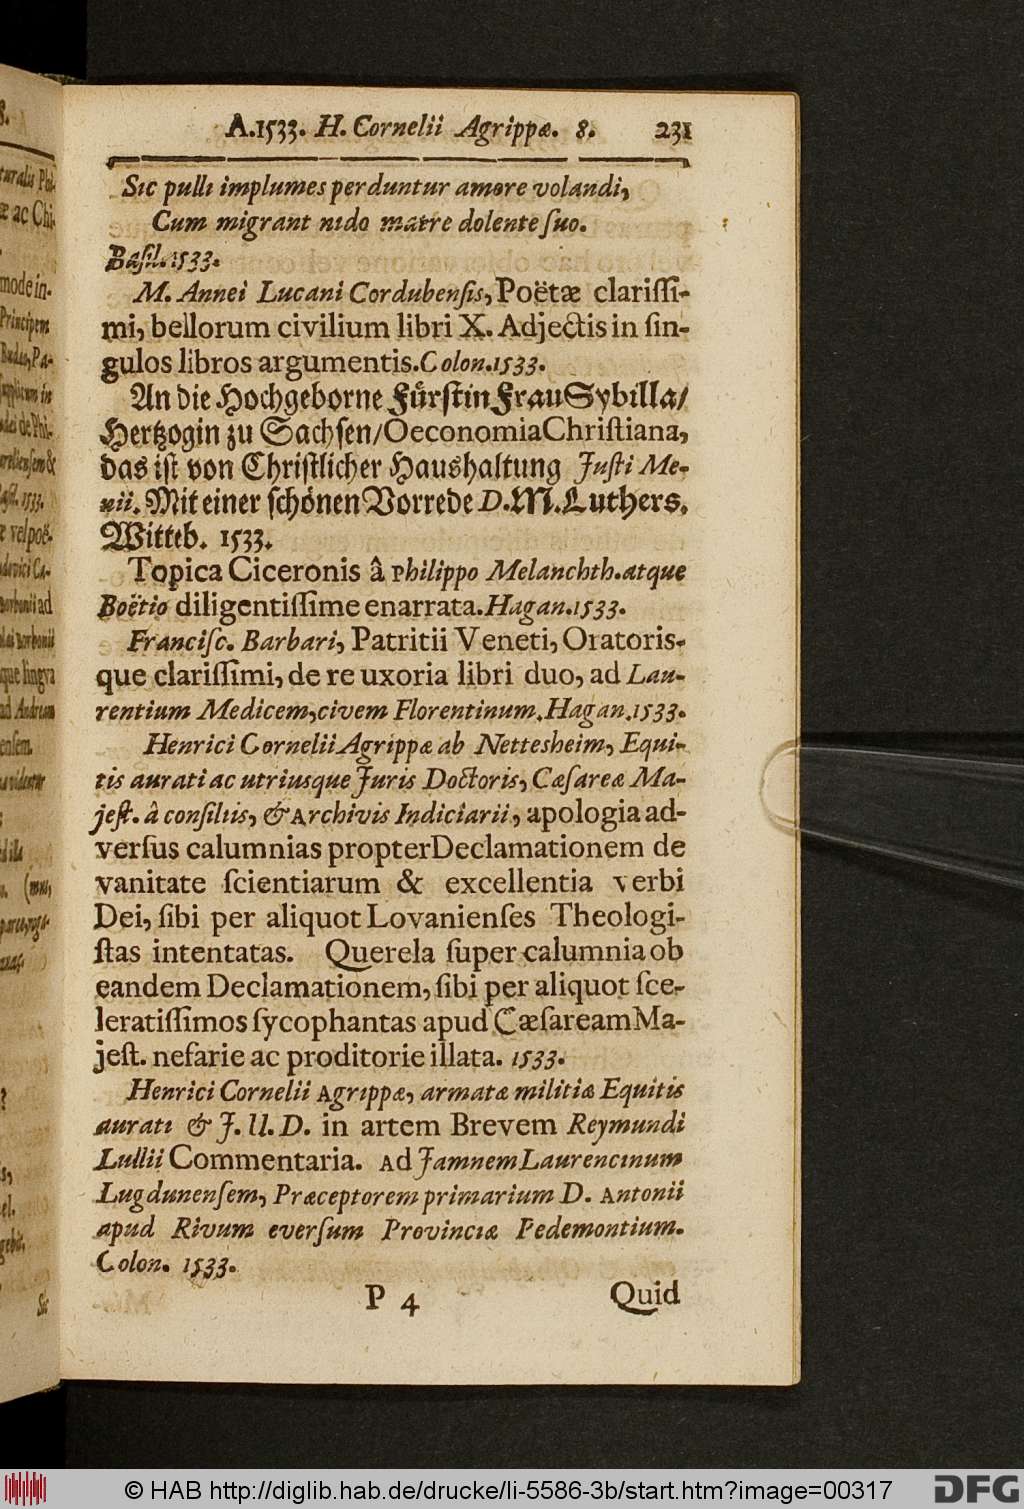 A.1533. H. Cornelii Agrippæ. 8. 231
Sic pulli implumes perduntur amore volandi,
Cum migrant nido matre dolente ſuo.
Baſil. 1533.
M. Annei Lucani Cordubenſis, Poëtæ clariſſi-
mi, bellorum civilium libri X. Adjectis in ſin-
gulos libros argumentis. Colon. 1533.
An die Hochgeborne Fürſtin Frau Sybilla/
Hertzogin zu Sachſen/ Oeconomia Chriſtiana,
das iſt von Chriſtlicher Haushaltung Juſti Me-
nii. Mit einer ſchönen Vorrede D. M. Luthers.
Witteb. 1533.
Topica Ciceronis â Philippo Melanchth. atque
Boëtio diligentiſſime enarrata. Hagan. 1533.
Franciſc. Barbari, Patritii Veneti, Oratoris-
que clariſſimi, de re uxoria libri duo, ad Lau-
rentium Medicem, civem Florentinum. Hagan. 1533.
Henrici Cornelii Agrippæ ab Nettesheim, Equi-
tis aurati ac utriusque Juris Doctoris, Cæſareæ Ma-
jeſt. â conſiliis, & Archivis Indiciarii, apologia ad-
verſus calumnias propter Declamationem de
vanitate ſcientiarum & excellentia verbi
Dei, ſibi per aliquot Lovanienſes Theologi-
ſtas intentatas. Querela ſuper calumnia ob
eandem Declamationem, ſibi per aliquot ſce-
leratiſſimos ſycophantas apud Cæſaream Ma-
jeſt. nefarie ac proditorie illata. 1533.
Henrici Cornelii Agrippæ, armatæ militiæ Equitis
aurati & J. U. D. in artem Brevem Reymundi
Lullii Commentaria. Ad Jamnem Laurencinum
Lugdunenſem, Præceptorem primarium D. Antonii
apud Rivum everſum Provinciæ Pedemontium.
Colon. 1533.
P 4 Quid
© HAB http://diglib.hab.de/drucke/li-5586-3b/start.htm?image=00317
DFG